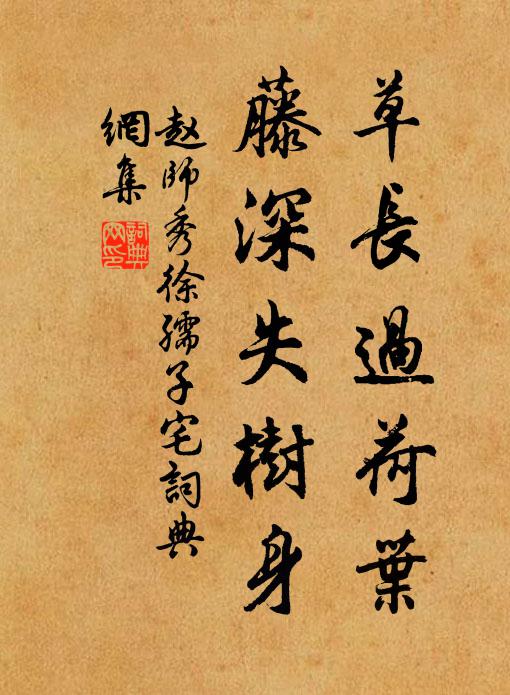 草長過荷葉
藤深失樹身
赵師秀徐孺子宅詞典
網集
詞典
网印